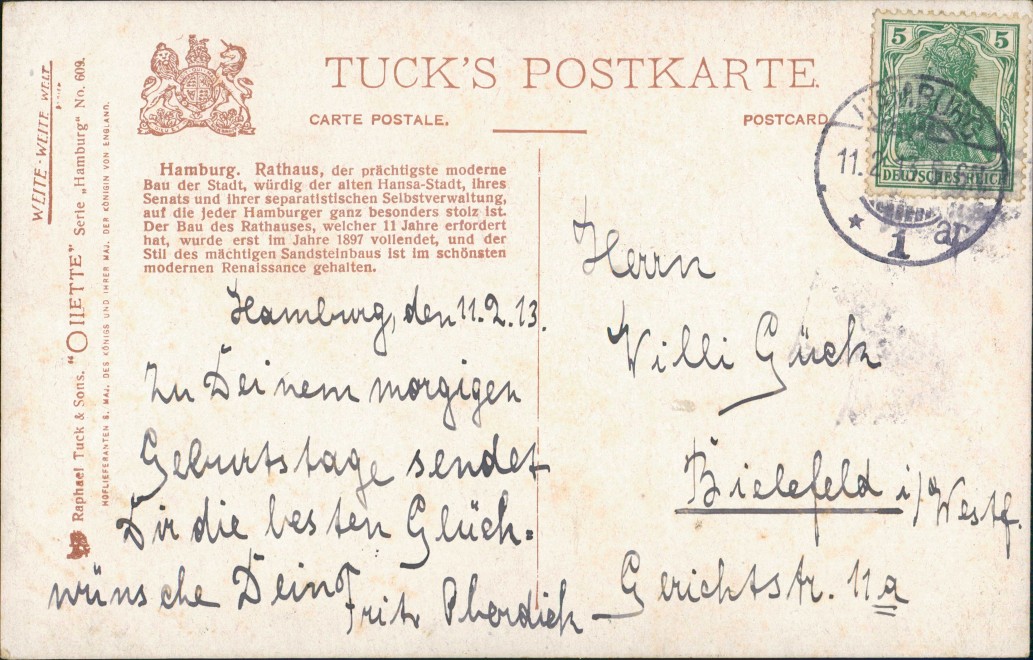 TUCK'S POSTKARTE.
CARTE POSTALE.
POSTCARD
Hamburg. Rathaus, der prächtigste moderne
Bau der Stadt, würdig der alten Hansa-Stadt, ihres
Senats und ihrer separatistischen Selbstverwaltung,
auf die jeder Hamburger ganz besonders stolz ist.
Der Bau des Rathauses, welcher 11 Jahre erfordert
hat, wurde erst im Jahre 1897 vollendet, und der
Stil des mächtigen Sandsteinbaus ist im schönsten
modernen Renaissance gehalten.
WEITE-WEITE WELT
Raphael Tuck & Sons. "OILETTE" Serie „Hamburg" No. 609.
HOFLIEFERANTEN S. MAJ. DES KÖNIGS UND IHRER MAJ. DER KÖNIGIN VON ENGLAND.
Hamburg, den 11.2.13.
Zu Deinem morgigen
Geburtstage sendet
Dir die besten Glück=
wünsche Dein
Fritz Oberdiek
5 5
DEUTSCHES REICH
HAMBURG
11.2.13. 5-6N.
* 1 ar
Herrn
Willi Gück
Bielefeld i/Westf.
Gerichtstr. 11a